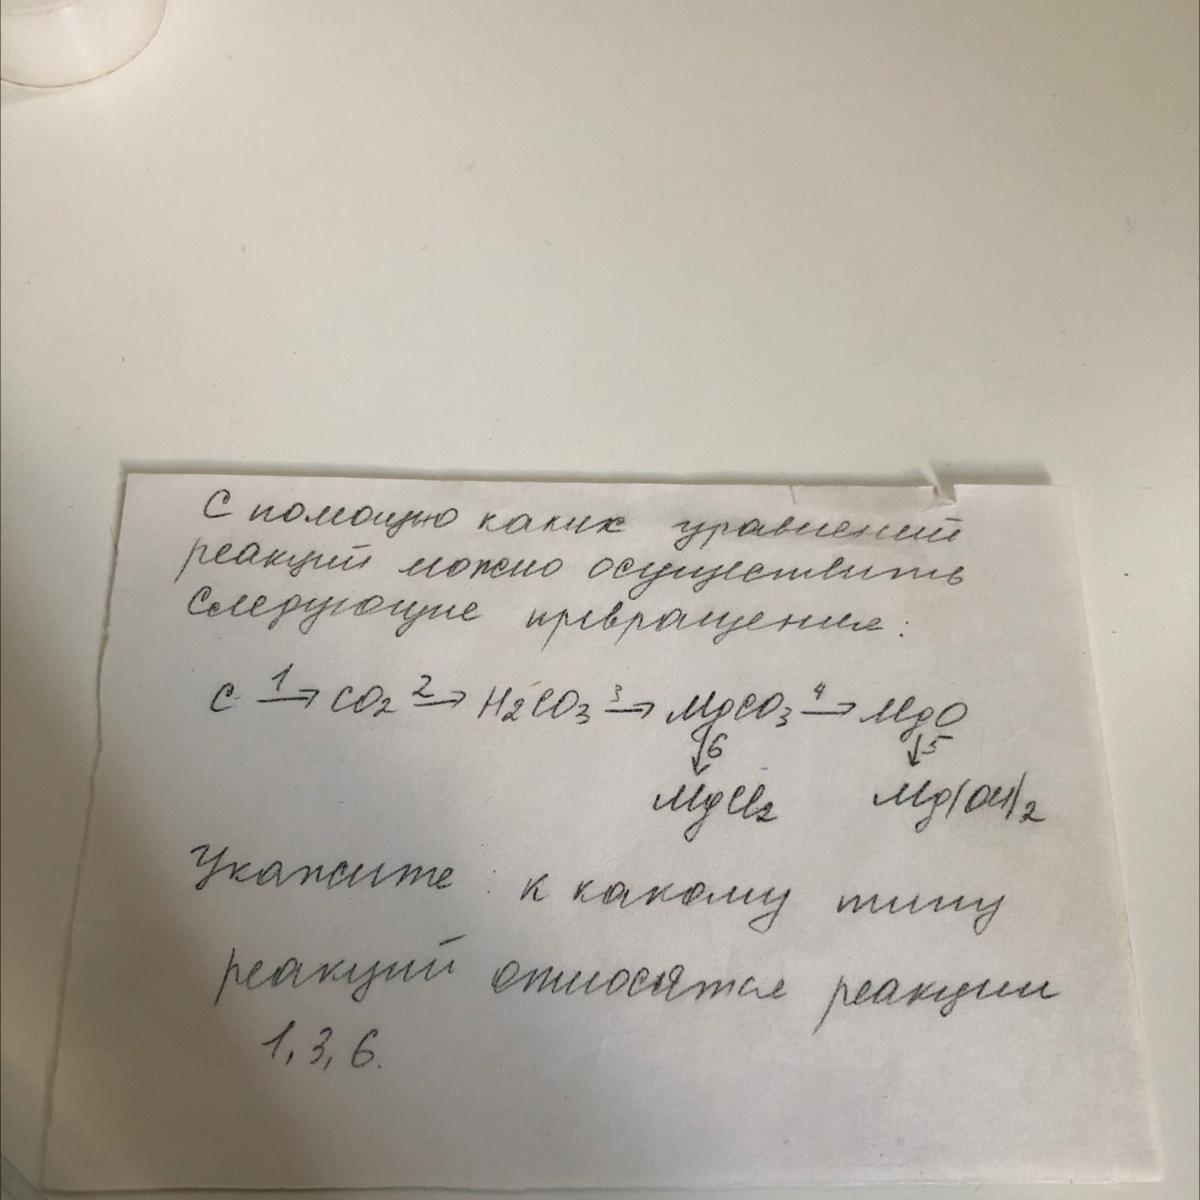 С помощью каких уравнений
реакций можно осуществить
следующие превращения:
C 1→ CO2 2→ H2CO3 3→ MgCO3 4→ MgO
↓6 ↓5
MgCl2 Mg(OH)2
Укажите: к какому типу
реакций относятся реакции
1, 3, 6.